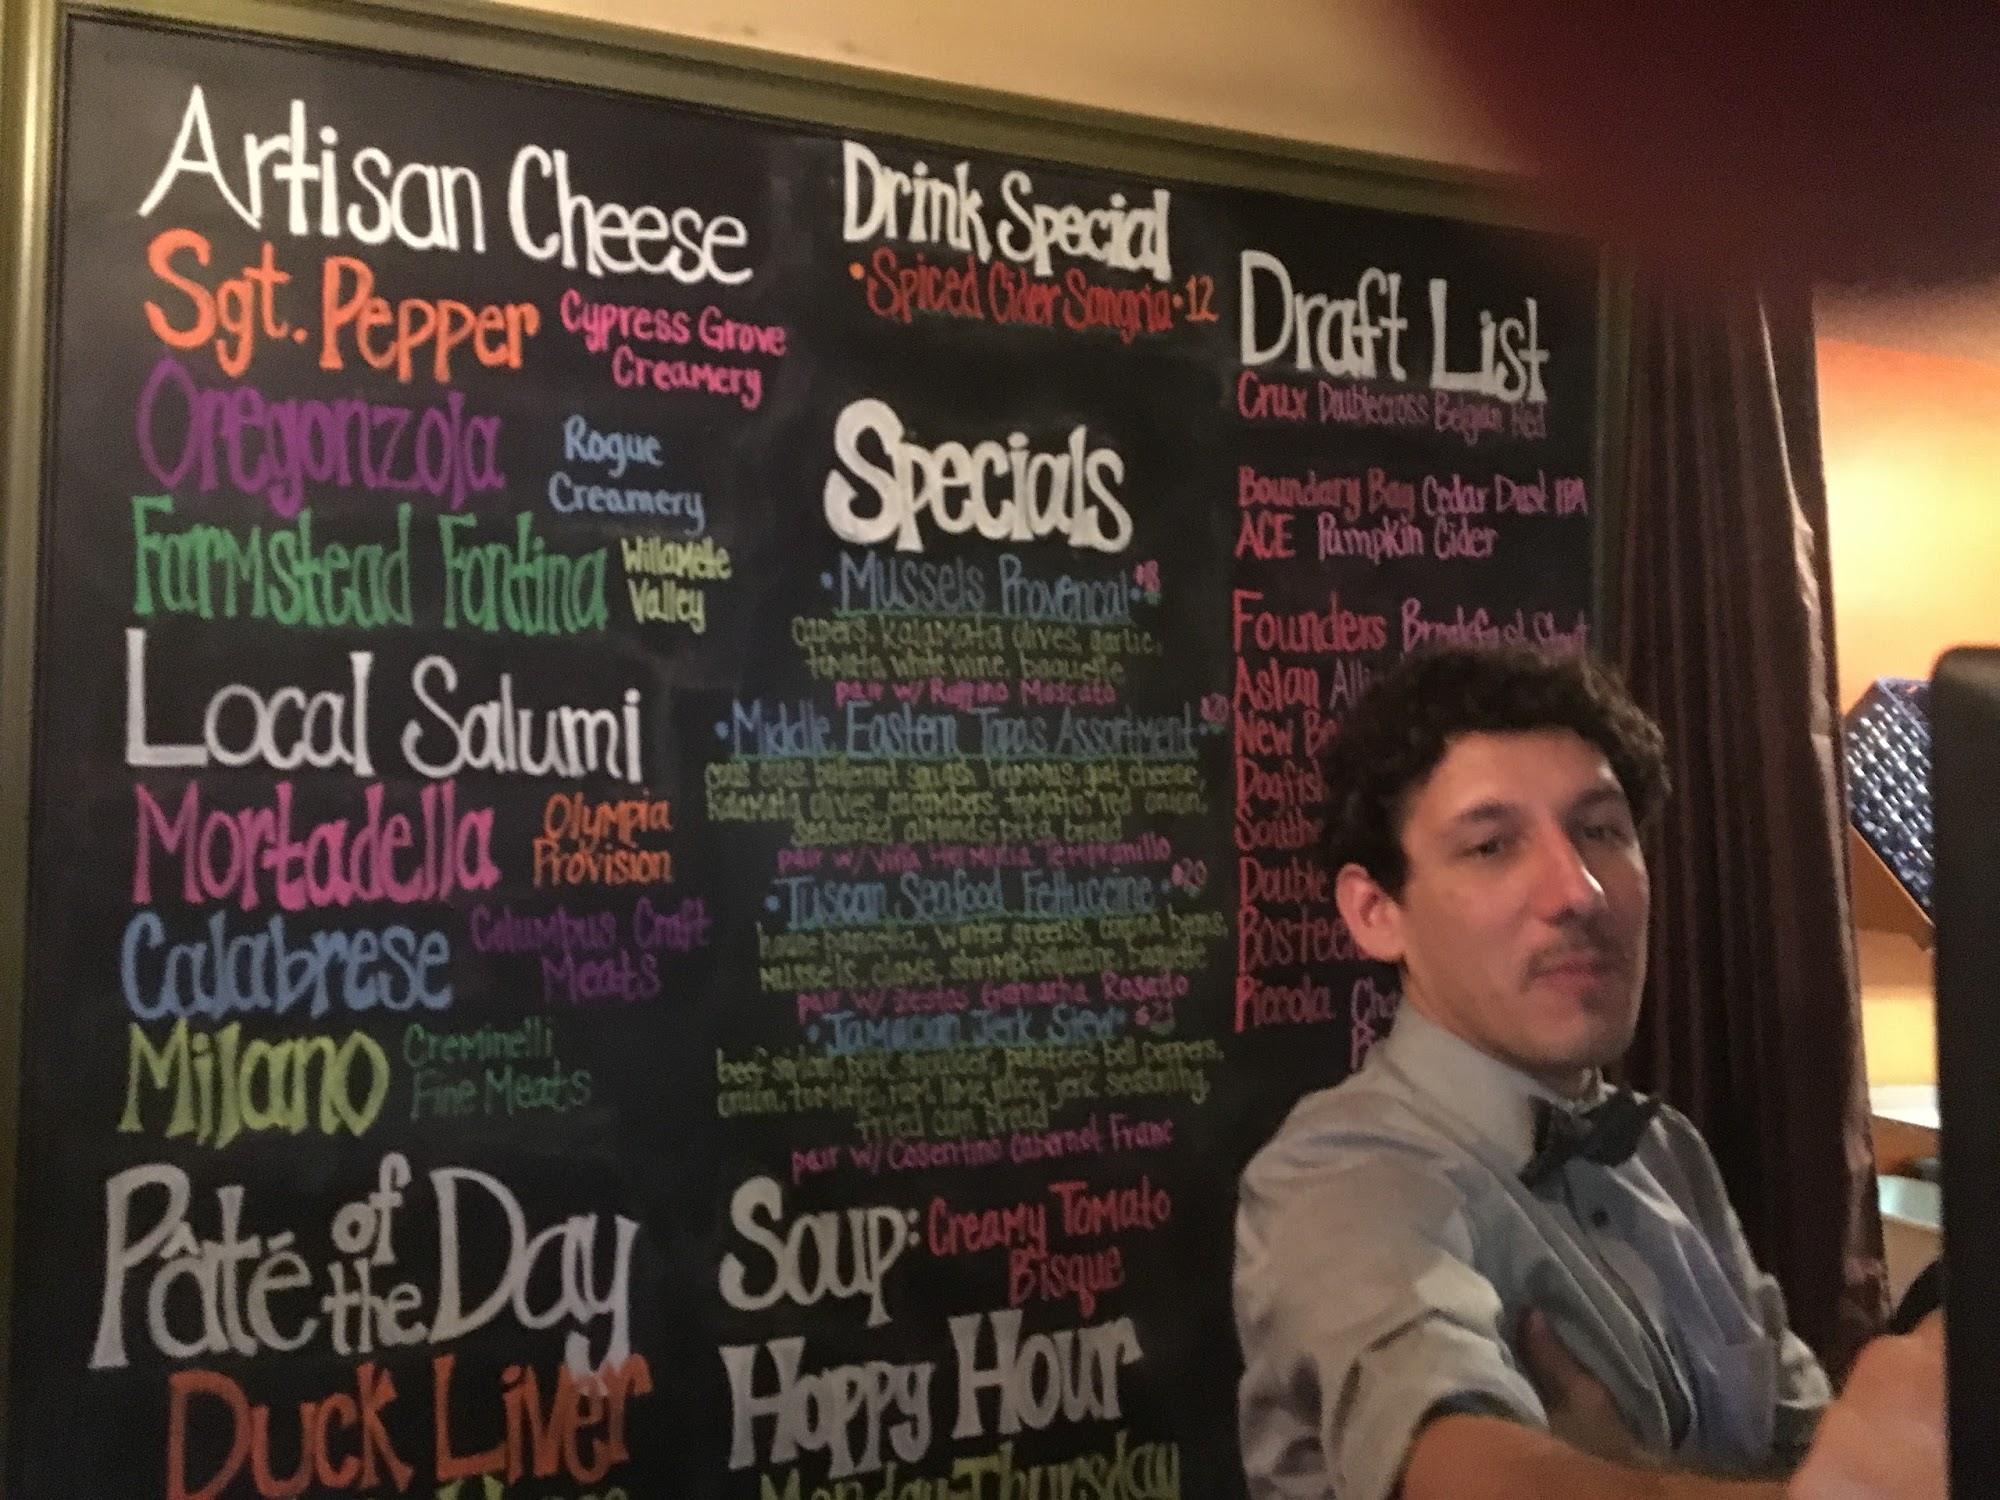 Artisan Cheese
Sgt. Pepper
Cypress Grove
Creamery
Oregonzola
Rogue
Creamery
Farmstead Fontina
Willamette
Valley
Local Salumi
Mortadella
Olympia
Provision
Calabrese
Columbus Craft
Meats
Milano
Creminelli
Fine Meats
Pâté of the Day
Duck Liver
Drink Special
• Spiced Cider Sangria • 12
Specials
• Mussels Provencal • $18
capers, kalamata olives, garlic,
tomato, white wine, baguette
pair w/ Ruffino Moscato
• Middle Eastern Tapas Assortment •
cous cous, butternut squash, hummus, goat cheese,
kalamata olives, cucumbers, tomato, red onion,
seasoned almonds, pita bread
pair w/ Viña Hermidia Tempranillo
• Tuscan Seafood Fettuccine • $20
house pancetta, winter greens, beans,
mussels, clams, shrimp, baguette
pair w/ Zestos Garnacha Rosado
• Jamacian Jerk Stew • $21
beef sirloin, pork shoulder, potatoes, bell peppers,
onion, tomato, rum, lime juice, jerk seasoning,
fried corn bread
pair w/ Cosentino Cabernet Franc
Soup: Creamy Tomato
Bisque
Happy Hour
Monday-Thursday
Draft List
Crux Doublecross Belgian Red
Boundary Bay Cedar Dust IPA
ACE Pumpkin Cider
Founders Breakfast Stout
Aslan
New
Double
Piccola